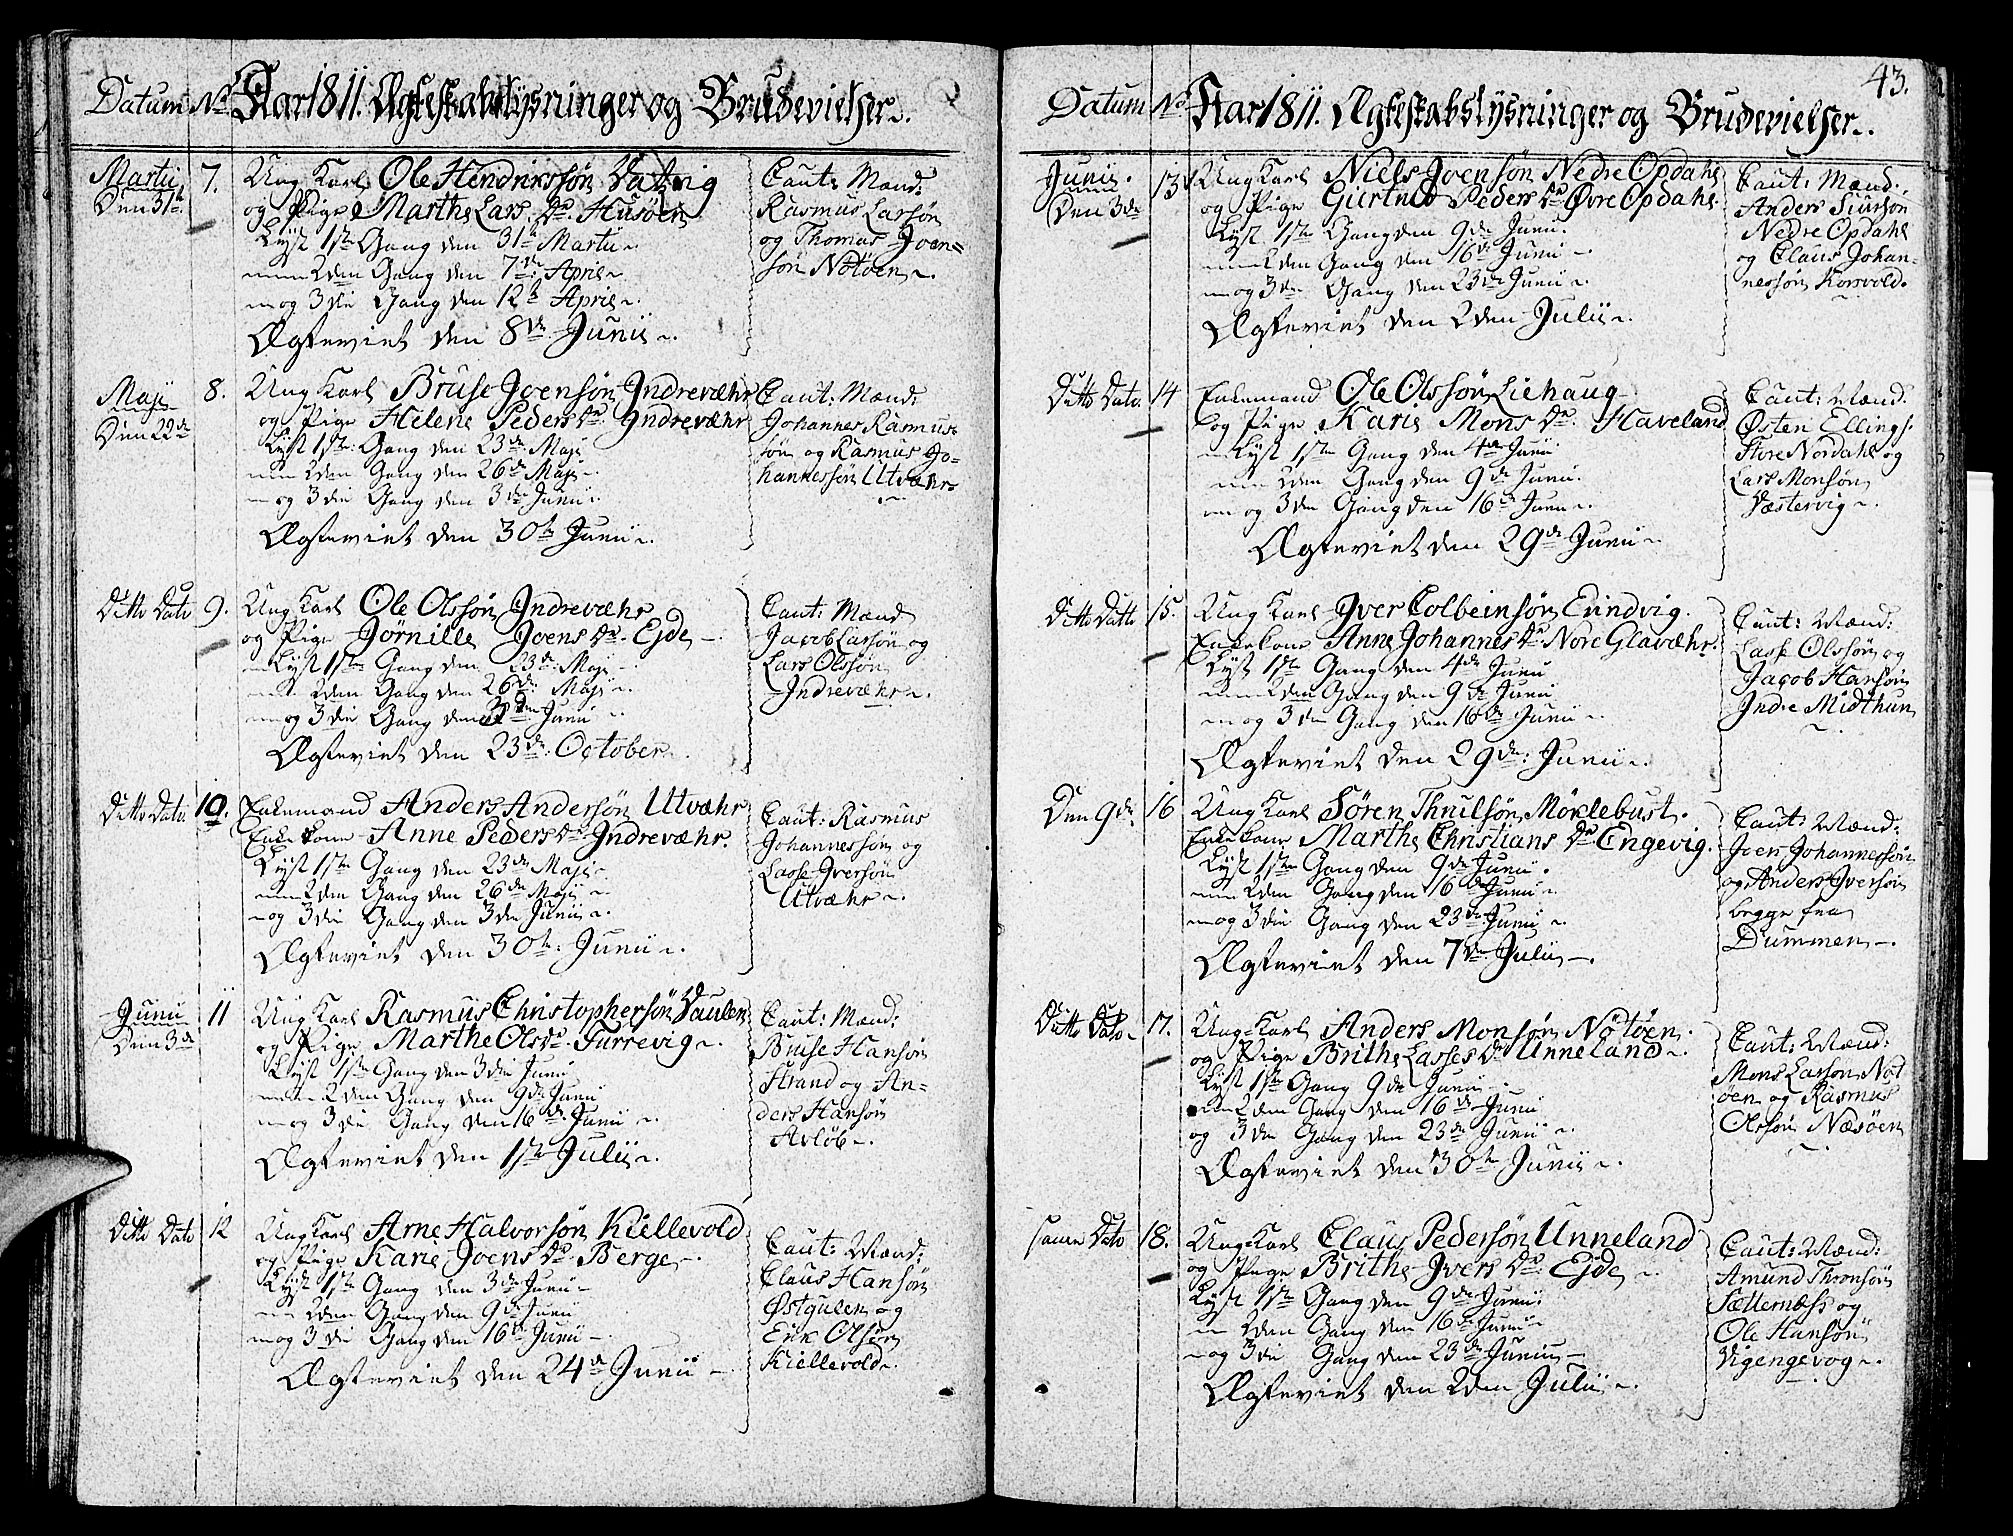 Datum No Aar 1811. Ægteskabslysninger og Brudevielser.
Martii 7. Ung Karl Ole Hendrikssøn
Den 31te og Pige Marthe Lars Dr. Husøen
Lyst 1ste Gang den 31te Martii
2den Gang den 7de April
og 3die Gang den 12te April
Ægteviet den 8de Junii
Caut: Mænd:
Rasmus Larsøn
og Thomas Joen=
søn Nötöen
Maji 8. Ung Karl Bruse Joensøn Indrevæhr
Den 22de og Pige Helene Peders Dr. Indrevæhr
Lyst 1ste Gang den 23de Maji
2den Gang den 26de Maji
og 3die Gang den 3die Junii
Ægteviet den 30te Junii
Caut: Mænd:
Johannes Rasmus=
søn og Rasmus Jo=
hannessøn Utvæhr
Ditto Dato 9. Ung Karl Ole Olssøn Indrevæhr
og Pige Jörnille Joens Dr. Ejde
Lyst 1ste Gang den 23de Maji
2den Gang den 26de Maji
og 3die Gang den 3die Junii
Ægteviet den 23de October
Caut: Mænd
Jacob Larsøn og
Lars Olssøn
Indrevæhr
Ditto Dato 10. Enkemand Anders Andersøn Utvæhr
Enkekone Anne Peders Dr. Indrevæhr.
Lyst 1ste Gang den 23de Maji
2den Gang den 26de Maji
og 3die Gang den 3die Junii
Ægteviet den 30te Junii
Caut: Rasmus
Johannessøn og
Lasse Iversøn
Utvæhr
Junii 11 Ung Karl Rasmus Christophersøn Daulen
Den 3de og Pige Marthe Ols Dr. Furrevig
Lyst 1ste Gang den 3die Junii
2den Gang den 9de Junii
og 3die Gang den 16de Junii
Ægteviet den 1ste Julii
Caut: Mænd:
Bruse Hansøn
Strand og An=
ders Hansøn
Asløb
Ditto Dato 12 Ung Karl Arne Halvorsøn Kiellevold
og Pige Karie Joens Dr. Berge
Lyst 1ste Gang den 3die Junii
2den Gang den 9de Junii
og 3die Gang den 16de Junii
Ægteviet den 24de Junii
Caut: Mænd:
Claus Hansøn
Østgulen og
Erik Olsøn
Kiellevold
43.
Datum No Aar 1811. Ægteskabslysninger og Brudevielser.
Junii. 13 Ung Karl Niels Joensøn Nedre Opdahl
Den 3de og Pige Giertrud Peders Dr Øvre Opdahl
Lyst 1ste Gang den 9de Junii
2den Gang den 16de Junii
og 3die Gang den 23de Junii
Ægteviet den 2den Julii
Caut: Mænd.
Anders Siursøn
Nedre Opdahl
og Claus Johan=
nessøn Korsvold.
Ditto Dato. 14 Enkemand Ole Olssøn Liehaug
og Pige Karie Mons Dr. Haveland
Lyst 1ste Gang den 4de Junii
2den Gang den 9de Junii.
og 3die Gang den 16de Junii
Ægteviet den 29de Junii
Caut: Mænd.
Østen Ellings:
Store Nordahl og
Lars Monsøn
Væstervig
Ditto Datto 15. Ung Karl Iver Colbeinsøn Evindvig.
Enkekone Anne Johannes Dr. Nore Glavæhr.
Lyst 1ste Gang den 4de Junii
2den Gang den 9de Junii
og 3die Gang den 16de Junii
Ægteviet den 29de Junii
Caut: Mænd:
Lasse Olssøn og
Jacob Hansøn
Indre Midthun
Den 9de 16 Ung Karl Søren Thuilsøn Möklebust.
Enkekone Marthe Christians Dr Engevig.
Lyst 1ste Gang den 9de Junii.
2den Gang den 16de Junii
og 3die Gang den 23de Junii
Ægteviet den 7de Julii
Caut: Mænd:
Joen Johannessøn
og Anders Iversøn
begge fra
Dummen
Ditto Dato 17. Ung Karl Anders Monsøn Nötöen.
og Pige Brithe Lasses Dr Unneland
Lyst 1ste Gang 9de Junii
2den Gang den 16de Junii
og 3die Gang den 23de Junii
Ægteviet den 30te Junii
Caut: Mænd:
Mons Larsøn Nöt
öen og Rasmus
Olssøn Næsöen
samme Dato 18. Ung Karl Claus Pedersøn Unneland
og Pige Brithe Ivers Dr. Ejde
Lyst 1ste Gang den 9de Junii
2den Gang den 16de Junii
og 3die Gang den 23de Junii
Ægteviet den 2den Julii
Caut: Mænd:
Amund Thronsøn
Sætternæss og
Ole Hansøn
Vigengevog